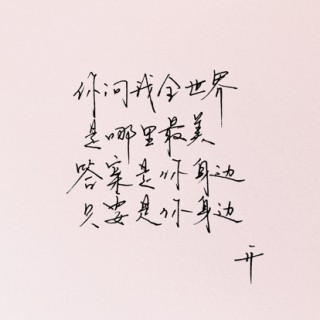 你问我全世界
是哪里最美
答案是你身边
只要是你身边